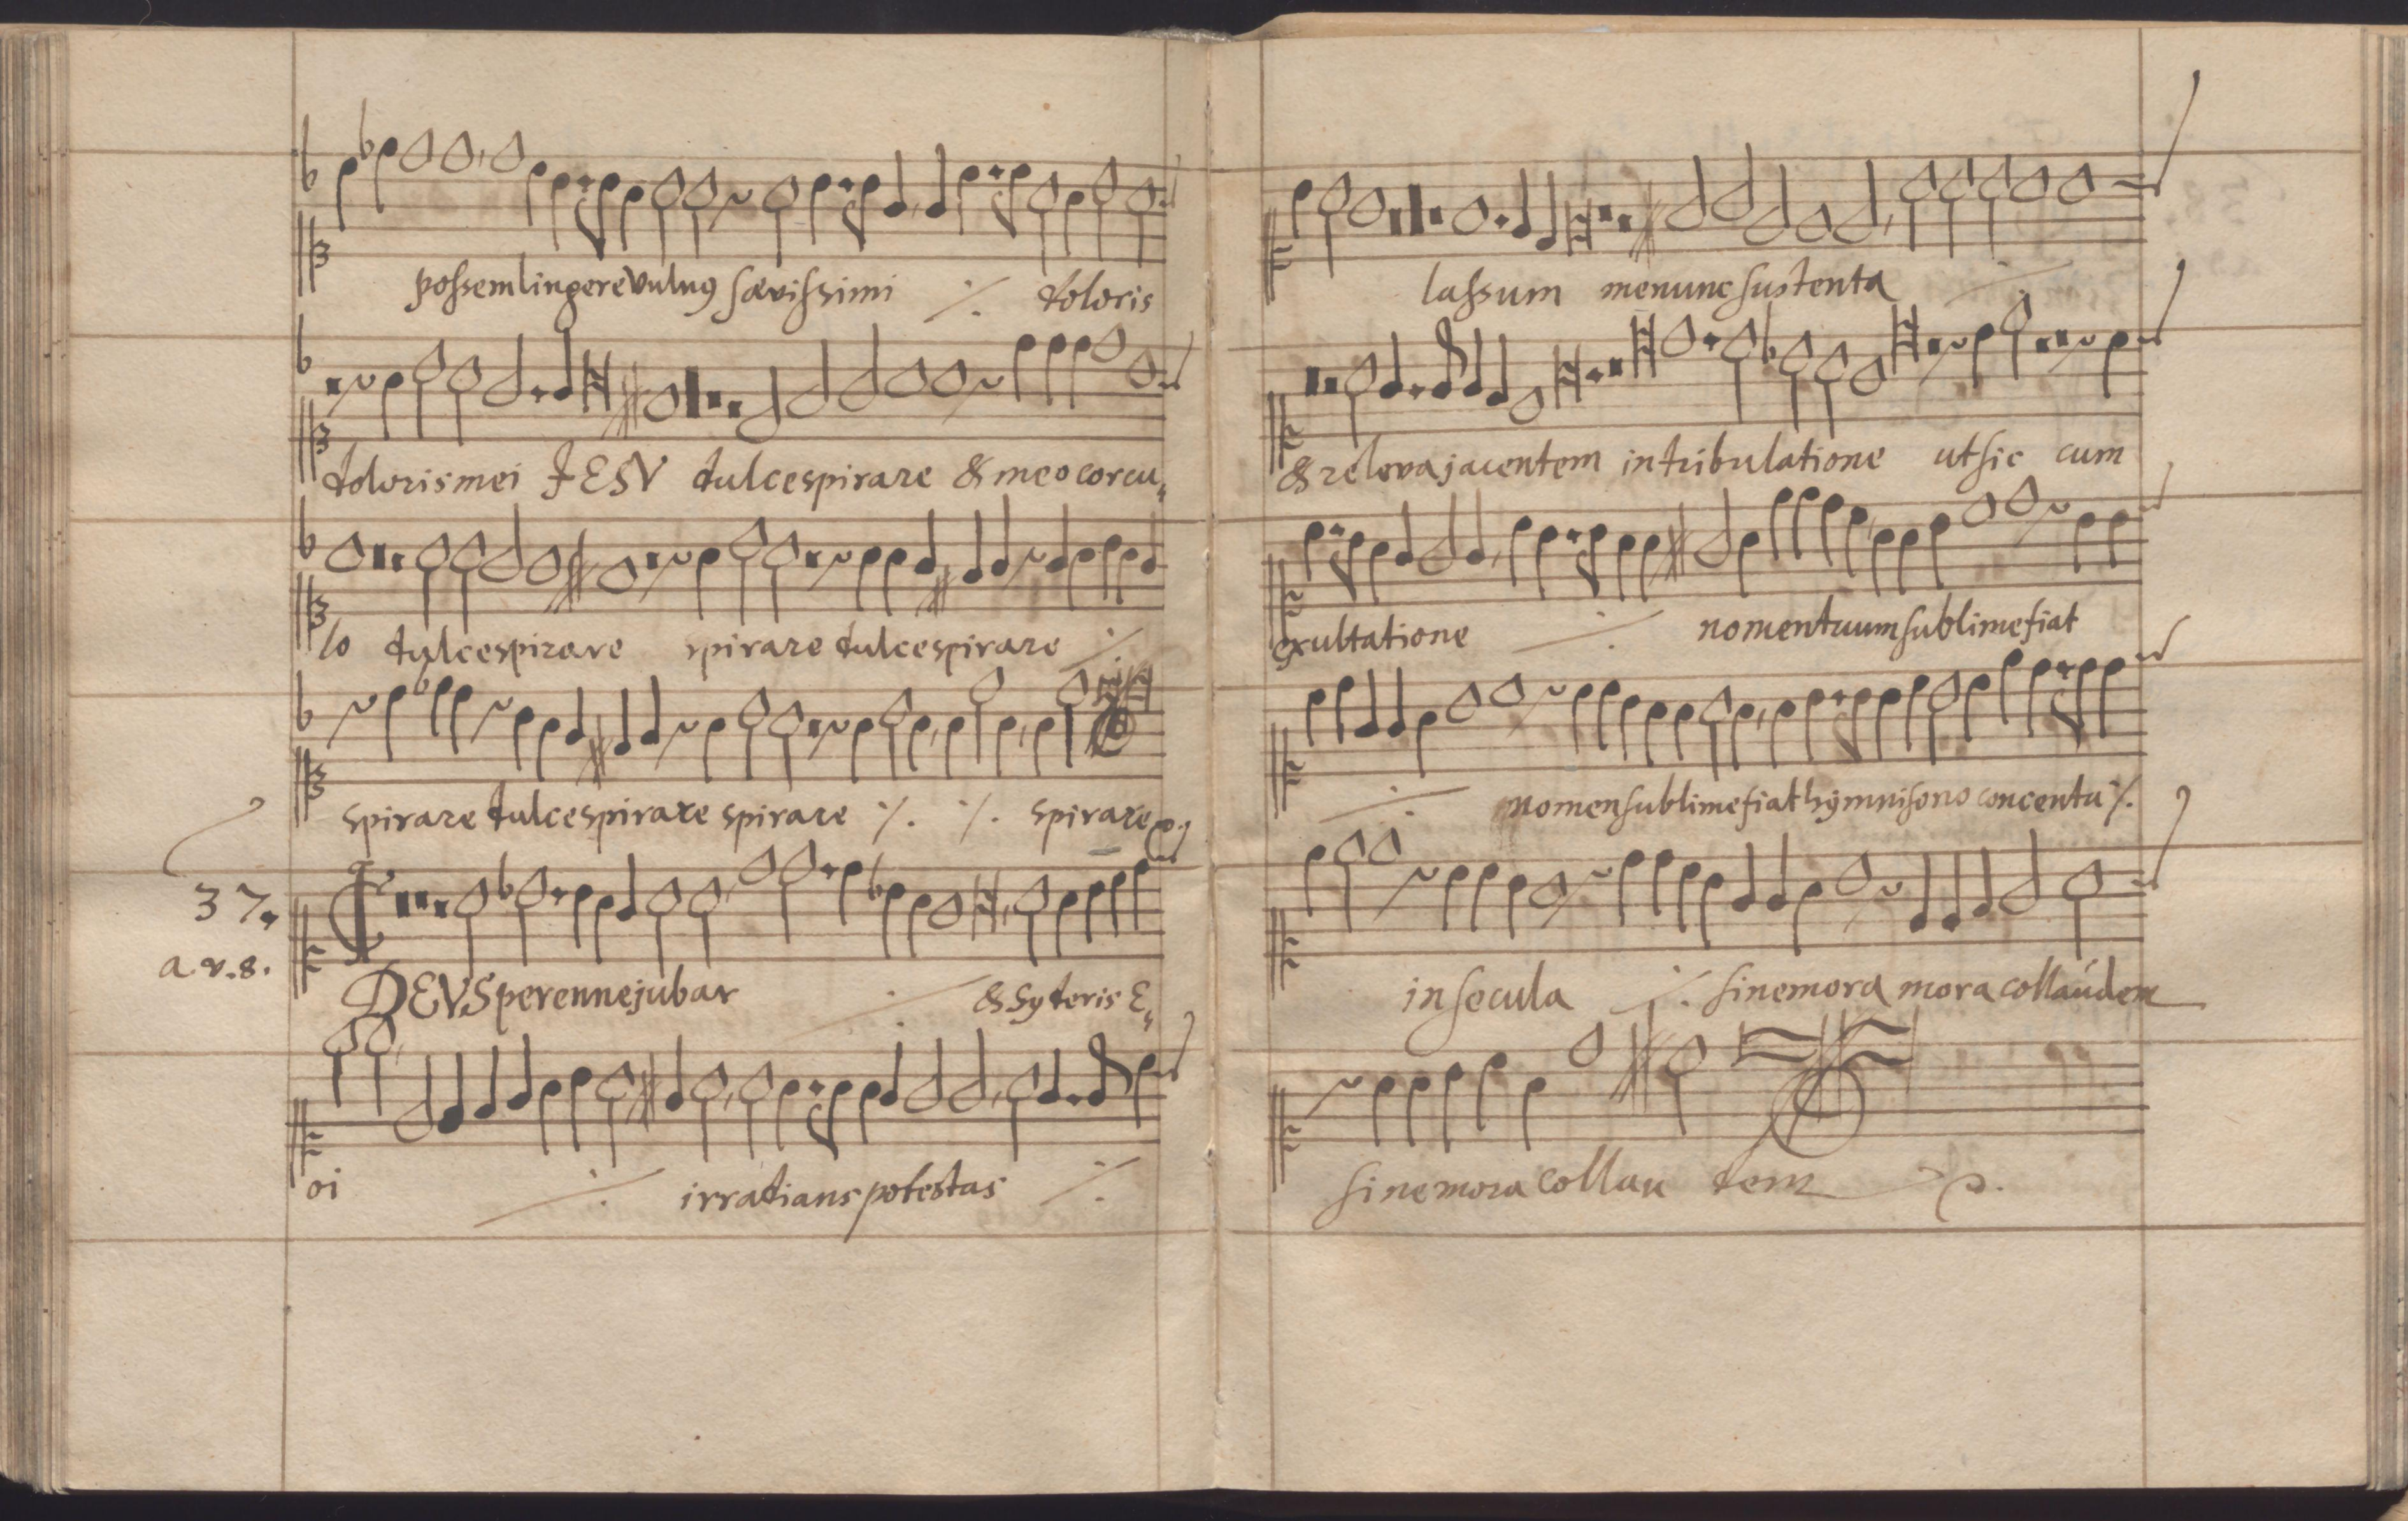 possem lingere vulnus sævissimi ٪ doloris
doloris mei JESV dulce spirare & meo corcu„
lo dulce spirare spirare dulce spirare ٪
spirare dulce spirare spirare ٪. ٪. spirare
37.
a.v.8.
DEVS perenne jubar ٪ & syderis E„
oi ٪ irradians potestas ٪
lassum me nunc sustenta ٪
& releva jacentem in tribulatione ut sic cum
exultatione ٪ nomen tuum sublime fiat
٪ nomen sublime fiat hymnisono concentu ٪.
in secula ٪ sine mora mora collaudem
sine mora collau dem